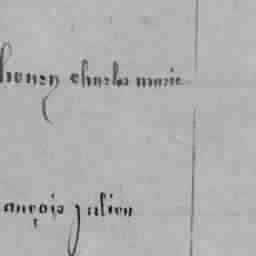 henry charles marie
ançois julien